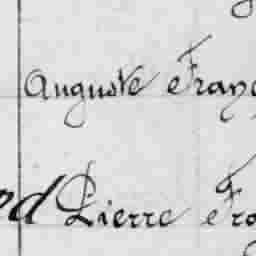 Auguste Franç
ed Pierre Fra